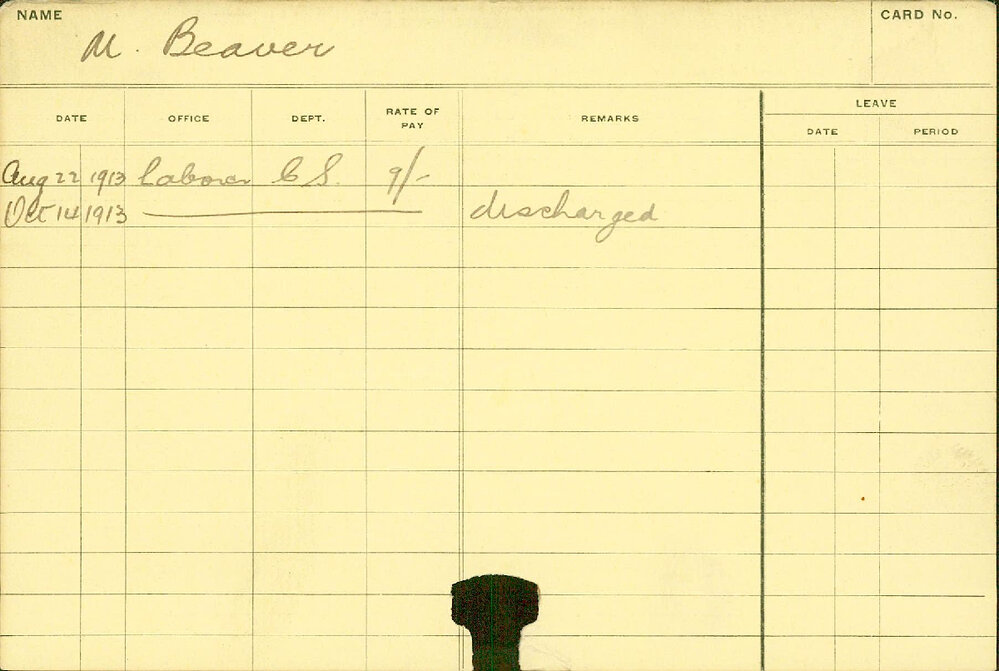 NAME
CARD No.
M. Beaver
LEAVE
DATE OFFICE DEPT. RATE OF PAY REMARKS DATE PERIOD
Aug 22 1913 Laborer C S. 9/-
Oct 14 1913 discharged